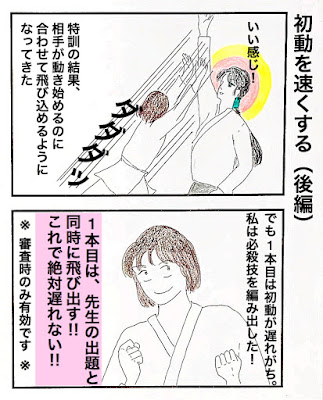 初動を速くする（後編）
いい感じ！
特訓の結果、
相手が動き始めるのに
合わせて飛び込めるように
なってきた
ダダダッ
でも１本目は初動が遅れがち。
私は必殺技を編み出した！
１本目は、先生の出題と
同時に飛び出す!!
これで絶対遅れない!!
※ 審査時のみ有効です ※